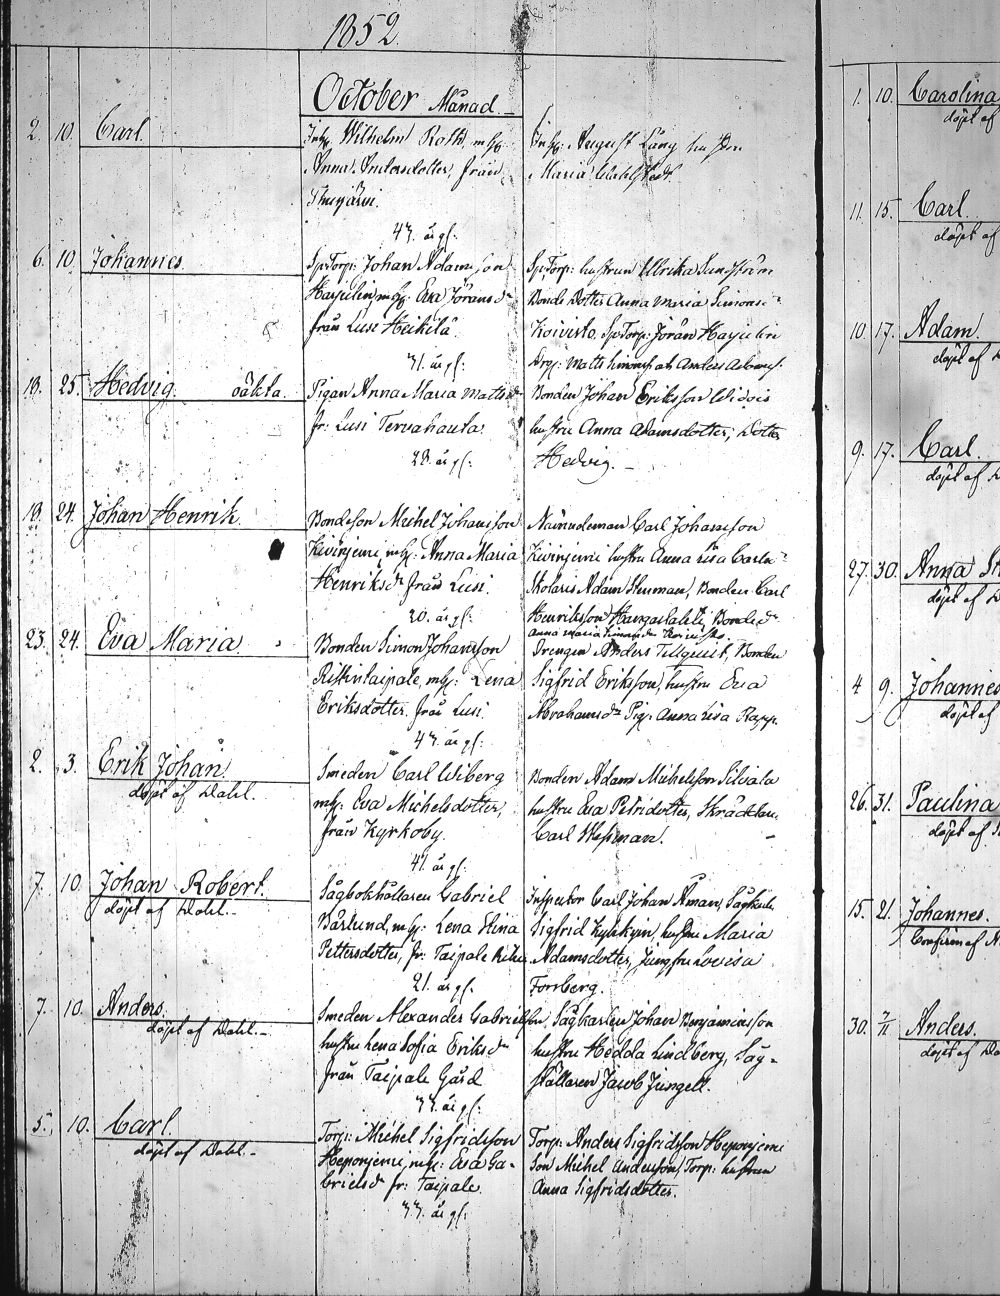 1852.
October Månad.
2. 10. Carl
Inh: Wilhelm Roth, m/h:
Anna Andersdotter, från
43. år gl:
Inh: August Lång hustru
Maria Wahlstedt.
6. 10. Johannes.
SpTorp: Johan Adamsson
Harjulin m/h: Eva Jöransdr
från Lusi Heikilä
31. år gl:
SpTorp: hustrun Ulrika Sundström
Bonde Dotter Anna Maria Simonsdr
Koivisto, SpTorp: Jöran Harjulin
Drg: Matts Simonss ah Anders Adamss.
19. 25. Hedvig. oäkta.
Pigan Anna Maria Mattsdr
fr: Lusi Tervahauta
28. år gl:
Bonden Johan Eriksson
hustru Anna Adamsdotter, Dotter
Hedvig. –
19. 24. Johan Henrik
Bondeson Michel Johansson
Kivinjemi, m/h: Anna Maria
Henriksdr från Lusi.
20. år gl:
Nämndeman Carl Johansson
Kivinjemi hustru Anna Lisa Carls-
Skolaris Adam Stenman, Bonden Carl
Henriksson Hangaslahti, Bondedr
Anna Maria Simonsdr Koivisto
23. 24. Eva Maria
Bonden Simon Johansson
Ristintaipale, m/h: Lena
Eriksdotter från Lusi.
43. år gl:
Drengen Anders Tillquist, Bonden
Sigfrid Eriksson, hustru Eva
Abrahamsdr Pig: Anna Lisa Rapp.
2. 3. Erik Johan
döpt af Dahl.
Smeden Carl Wiberg
m/h: Eva Michelsdotter,
från Kyrkoby.
41. år gl:
Bonden Adam Michelsson Silvala
hustru Eva Petridotter, Skräddaren
Carl Wessman.
7. 10. Johan Robert.
döpt af Dahl.–
Sågbokhållaren Gabriel
Bårlund, m/h: Lena Stina
Pettersdotter, fr: Taipale
21. år gl:
Inspector Carl Johan Åman, Sågkarl
Sigfrid Kykkyri, hustru Maria
Adamsdotter, Jungfru Lovisa
Forrberg.
7. 10. Anders.
döpt af Dahl.–
Smeden Alexander Gabrielsson
hustru Lena Sofia Eriksdr
från Taipale Gård
33. år gl:
Sågkarlen Johan Benjaminsson
hustru Hedda Lindberg, Såg-
ställaren Jacob Jungell.
5. 10. Carl.
döpt af Dahl.–
Torp: Michel Sigfridsson
Heponjemi, m/h: Eva Ga-
brielsdr fr: Taipale.
33. år gl:
Torp: Anders Sigfridsson Heponjemi
Son Michel Andersson, Torp: hustrun
Anna Sigfridsdotter.
1. 10. Carolina
döpt af
11. 15. Carl.
döpt af
10. 17. Adam.
döpt af
9. 17. Carl.
döpt af
27. 30. Anna
döpt af
4 9. Johannes
döpt af
26. 31. Paulina
döpt af
15. 21. Johannes.
Confirm af
30. 7/11 Anders.
döpt af Da